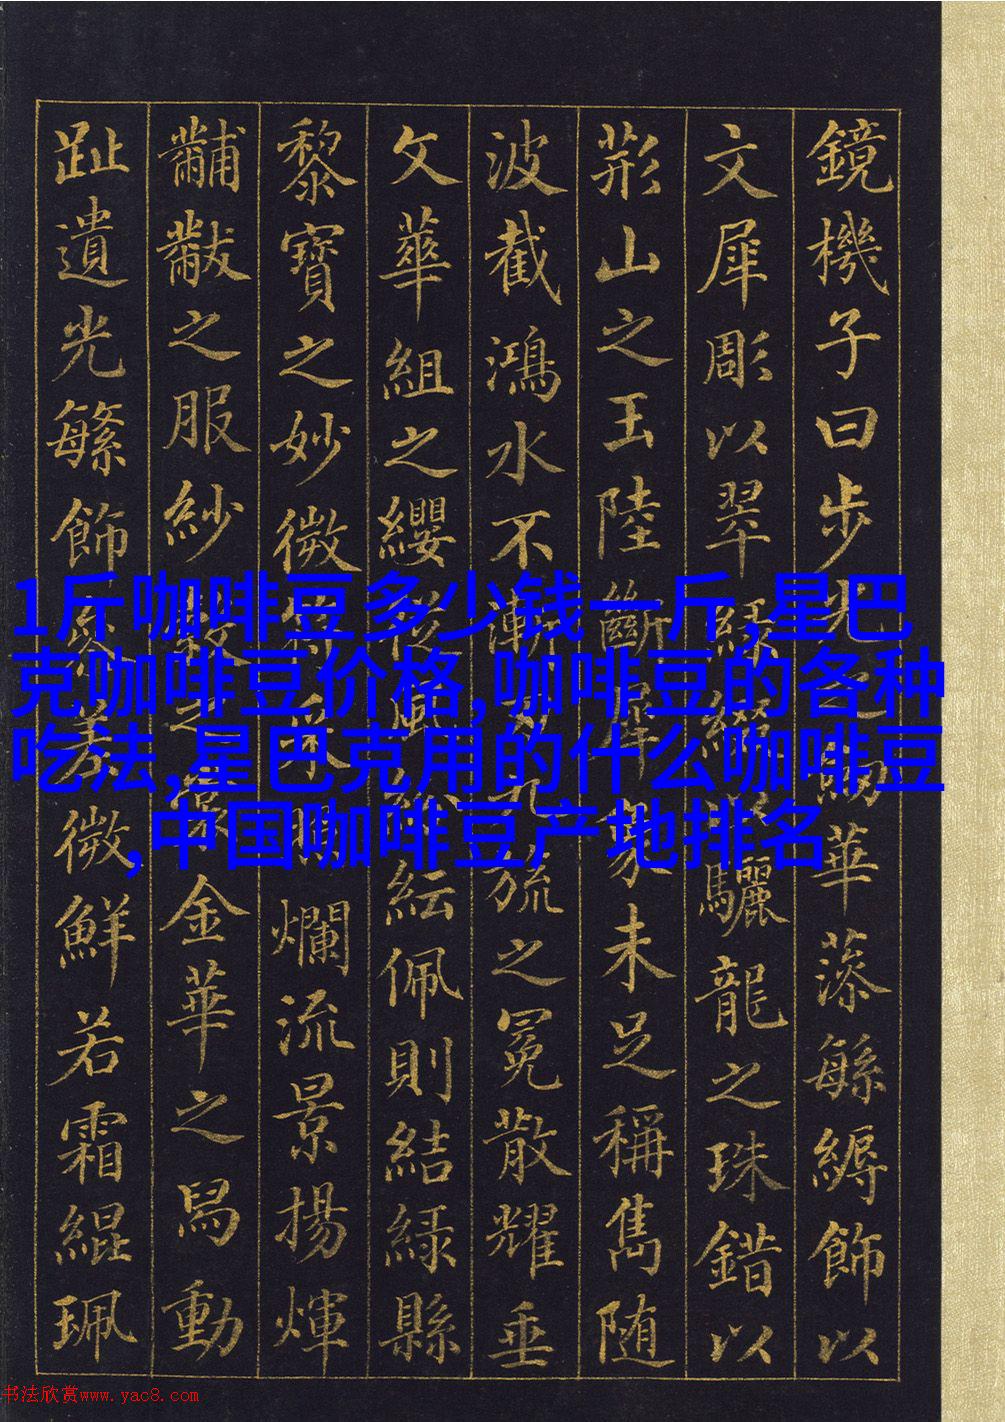 鏡機子曰步光之劒華藻緐縟飾以
文犀彫以翠綠綴以驪龍之珠錯以
荊山之玉陸斷犀象未足稱雋随
波截鴻水不漸刃九旒之冕散耀垂
文華組之纓從風紛紜佩則結緑縣
黎寶之妙微符采照爛流景揚煇
黼黻之服紗縠之裳金華之舄動
趾遺光緐飾參差微鮮若霜緄珮
1斤咖啡豆多少钱一斤,星巴
克咖啡豆价格,咖啡豆的各种
吃法,星巴克用的什么咖啡豆
,中国咖啡豆产地排名
书法欣赏www.yac8.com